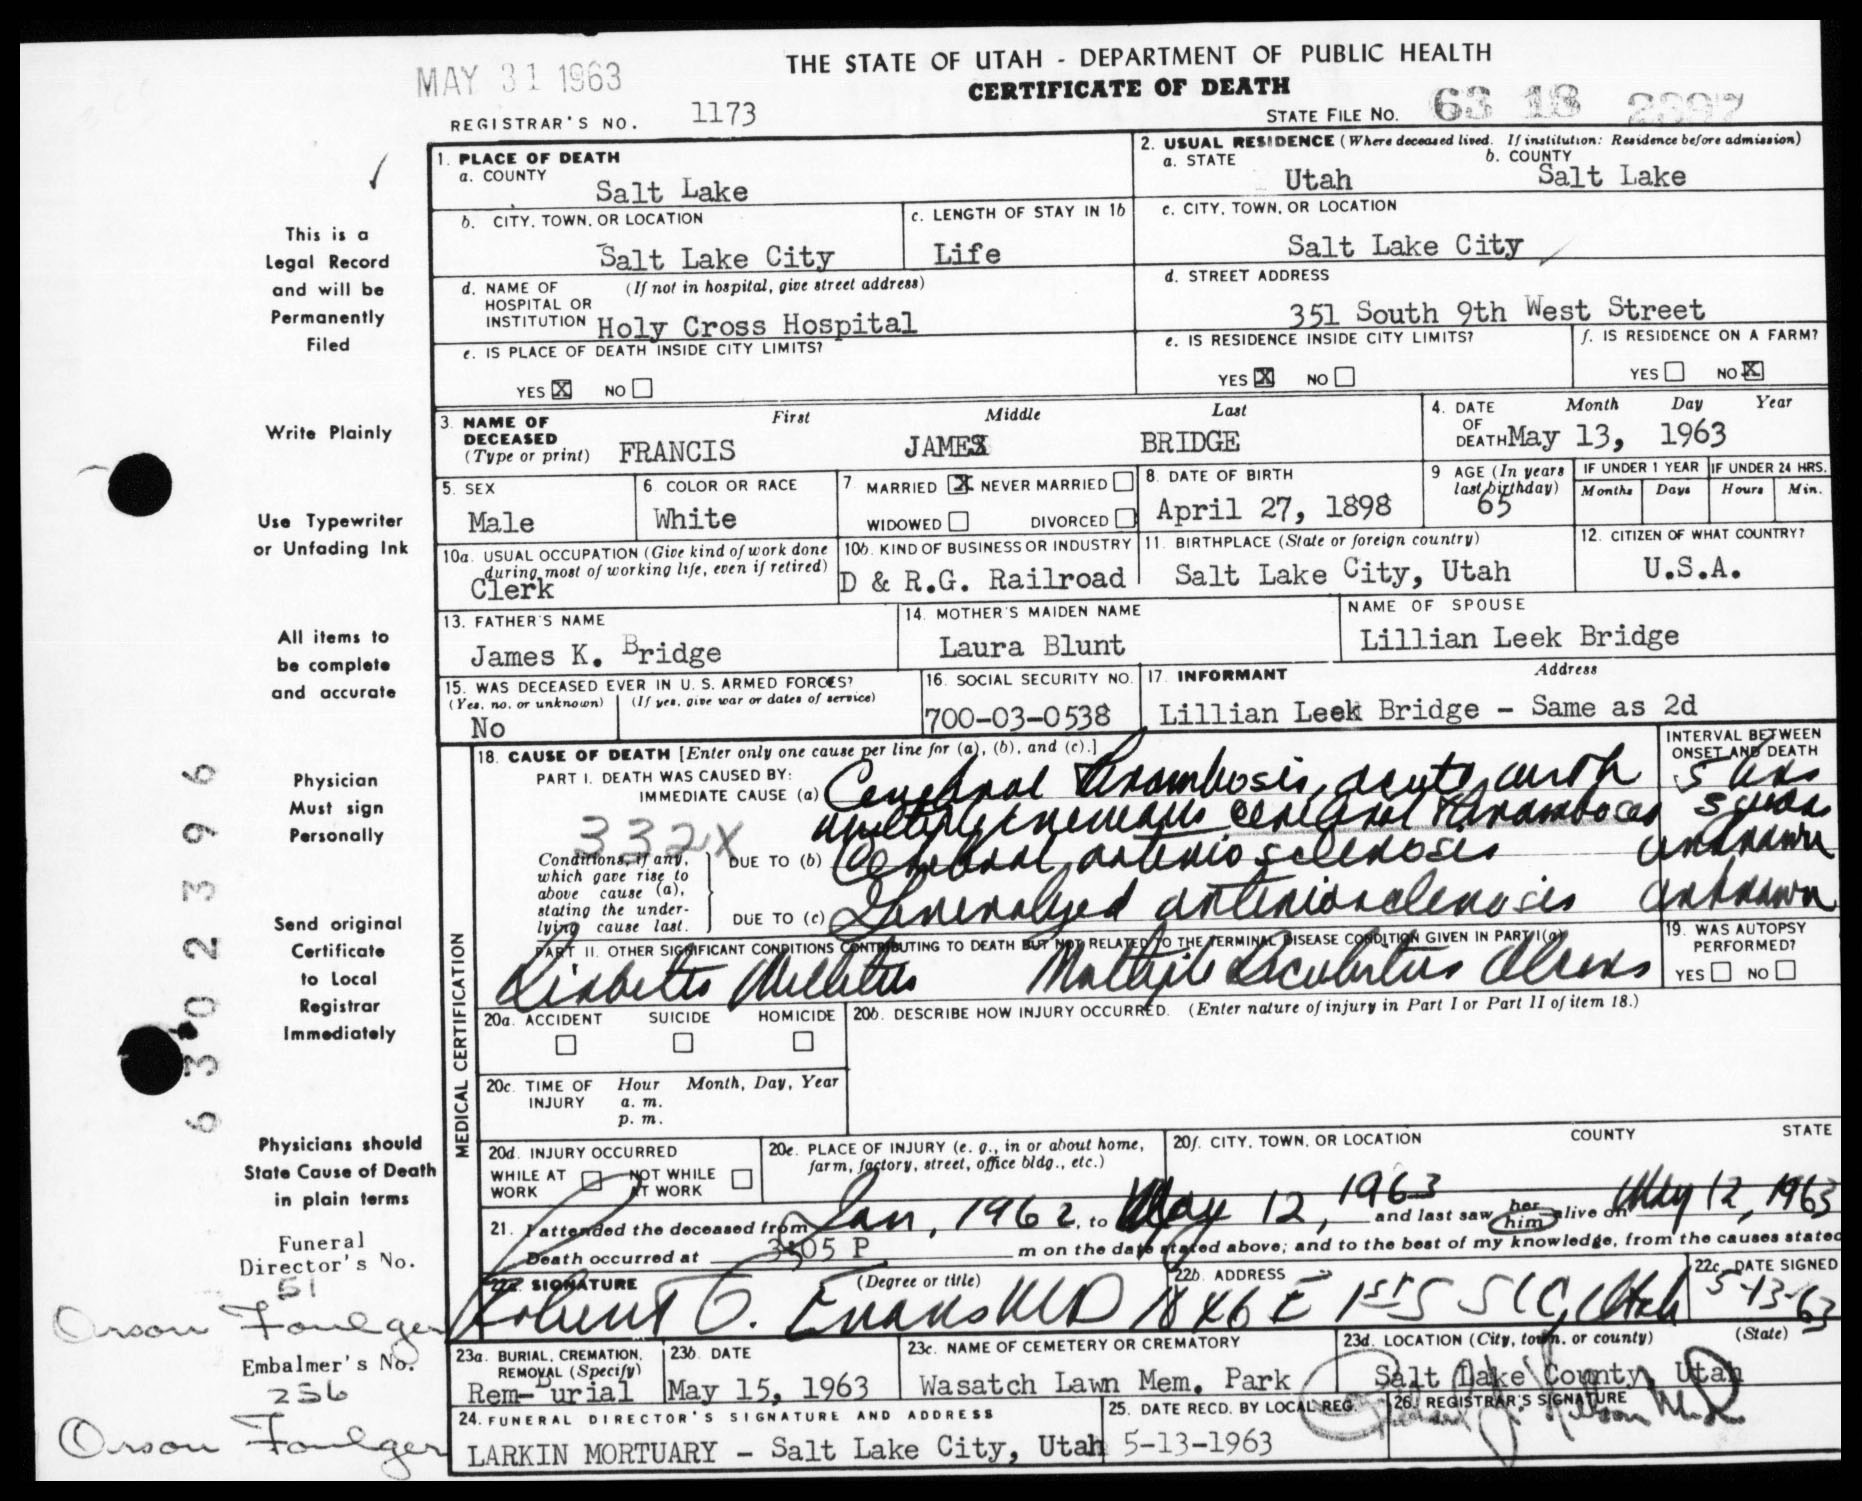 THE STATE OF UTAH - DEPARTMENT OF PUBLIC HEALTH
MAY 31 1963
CERTIFICATE OF DEATH
REGISTRAR'S NO. 1173
STATE FILE NO. 63 18 2397
1. PLACE OF DEATH
a. COUNTY
Salt Lake
2. USUAL RESIDENCE (Where deceased lived. If institution: Residence before admission)
a. STATE Utah
b. COUNTY Salt Lake
b. CITY, TOWN, OR LOCATION
Salt Lake City
c. LENGTH OF STAY IN 1b
Life
c. CITY, TOWN, OR LOCATION
Salt Lake City
d. NAME OF HOSPITAL OR INSTITUTION (If not in hospital, give street address)
Holy Cross Hospital
d. STREET ADDRESS
351 South 9th West Street
e. IS PLACE OF DEATH INSIDE CITY LIMITS?
YES X NO
e. IS RESIDENCE INSIDE CITY LIMITS?
YES X NO
f. IS RESIDENCE ON A FARM?
YES NO X
3. NAME OF DECEASED (Type or print)
First Middle Last
FRANCIS JAMES BRIDGE
4. DATE OF DEATH Month Day Year
May 13, 1963
5. SEX
Male
6. COLOR OR RACE
White
7. MARRIED X NEVER MARRIED
WIDOWED DIVORCED
8. DATE OF BIRTH
April 27, 1898
9 AGE (In years last birthday)
65
IF UNDER 1 YEAR
Months Days
IF UNDER 24 HRS.
Hours Min.
10a. USUAL OCCUPATION (Give kind of work done during most of working life, even if retired)
Clerk
10b. KIND OF BUSINESS OR INDUSTRY
D & R.G. Railroad
11. BIRTHPLACE (State or foreign country)
Salt Lake City, Utah
12. CITIZEN OF WHAT COUNTRY?
U.S.A.
13. FATHER'S NAME
James K. Bridge
14. MOTHER'S MAIDEN NAME
Laura Blunt
NAME OF SPOUSE
Lillian Leek Bridge
15. WAS DECEASED EVER IN U. S. ARMED FORCES?
(Yes, no, or unknown) (If yes, give war or dates of service)
No
16. SOCIAL SECURITY NO.
700-03-0538
17. INFORMANT Address
Lillian Leek Bridge - Same as 2d
MEDICAL CERTIFICATION
18. CAUSE OF DEATH [Enter only one cause per line for (a), (b), and (c).]
INTERVAL BETWEEN ONSET AND DEATH
PART I. DEATH WAS CAUSED BY:
IMMEDIATE CAUSE (a) Cerebral thrombosis, acute, with
multiple previous cerebral thromboses
332X
Conditions, if any, which gave rise to above cause (a), stating the underlying cause last.
DUE TO (b) Cerebral arteriosclerosis unknown
DUE TO (c) Generalized arteriosclerosis unknown
PART II. OTHER SIGNIFICANT CONDITIONS CONTRIBUTING TO DEATH BUT NOT RELATED TO THE TERMINAL DISEASE CONDITION GIVEN IN PART I(a)
Diabetes Mellitus Multiple Decubitus Ulcers
19. WAS AUTOPSY PERFORMED?
YES NO
20a. ACCIDENT SUICIDE HOMICIDE
20b. DESCRIBE HOW INJURY OCCURRED. (Enter nature of injury in Part I or Part II of item 18.)
20c. TIME OF INJURY Hour Month, Day, Year
a. m.
p. m.
20d. INJURY OCCURRED
WHILE AT WORK NOT WHILE AT WORK
20e. PLACE OF INJURY (e. g., in or about home, farm, factory, street, office bldg., etc.)
20f. CITY, TOWN, OR LOCATION COUNTY STATE
21. I attended the deceased from Jan, 1962, to May 12, 1963 and last saw her him alive on May 12, 1963
Death occurred at 3:05 P m on the date stated above; and to the best of my knowledge, from the causes stated
22a. SIGNATURE (Degree or title)
Robert O. Evans MD
22b. ADDRESS
1846 E 1st S SLC, Utah
22c. DATE SIGNED
5-13-63
23a. BURIAL, CREMATION, REMOVAL (Specify)
Rem-Burial
23b. DATE
May 15, 1963
23c. NAME OF CEMETERY OR CREMATORY
Wasatch Lawn Mem. Park
23d. LOCATION (City, town, or county) (State)
Salt Lake County, Utah
24. FUNERAL DIRECTOR'S SIGNATURE AND ADDRESS
LARKIN MORTUARY - Salt Lake City, Utah
25. DATE RECD. BY LOCAL REG.
5-13-1963
26. REGISTRAR'S SIGNATURE
This is a
Legal Record
and will be
Permanently
Filed
Write Plainly
Use Typewriter
or Unfading Ink
All items to
be complete
and accurate
Physician
Must sign
Personally
Send original
Certificate
to Local
Registrar
Immediately
Physicians should
State Cause of Death
in plain terms
Funeral
Director's No.
51
Orson Foulger
Embalmer's No.
256
Orson Foulger
6302396